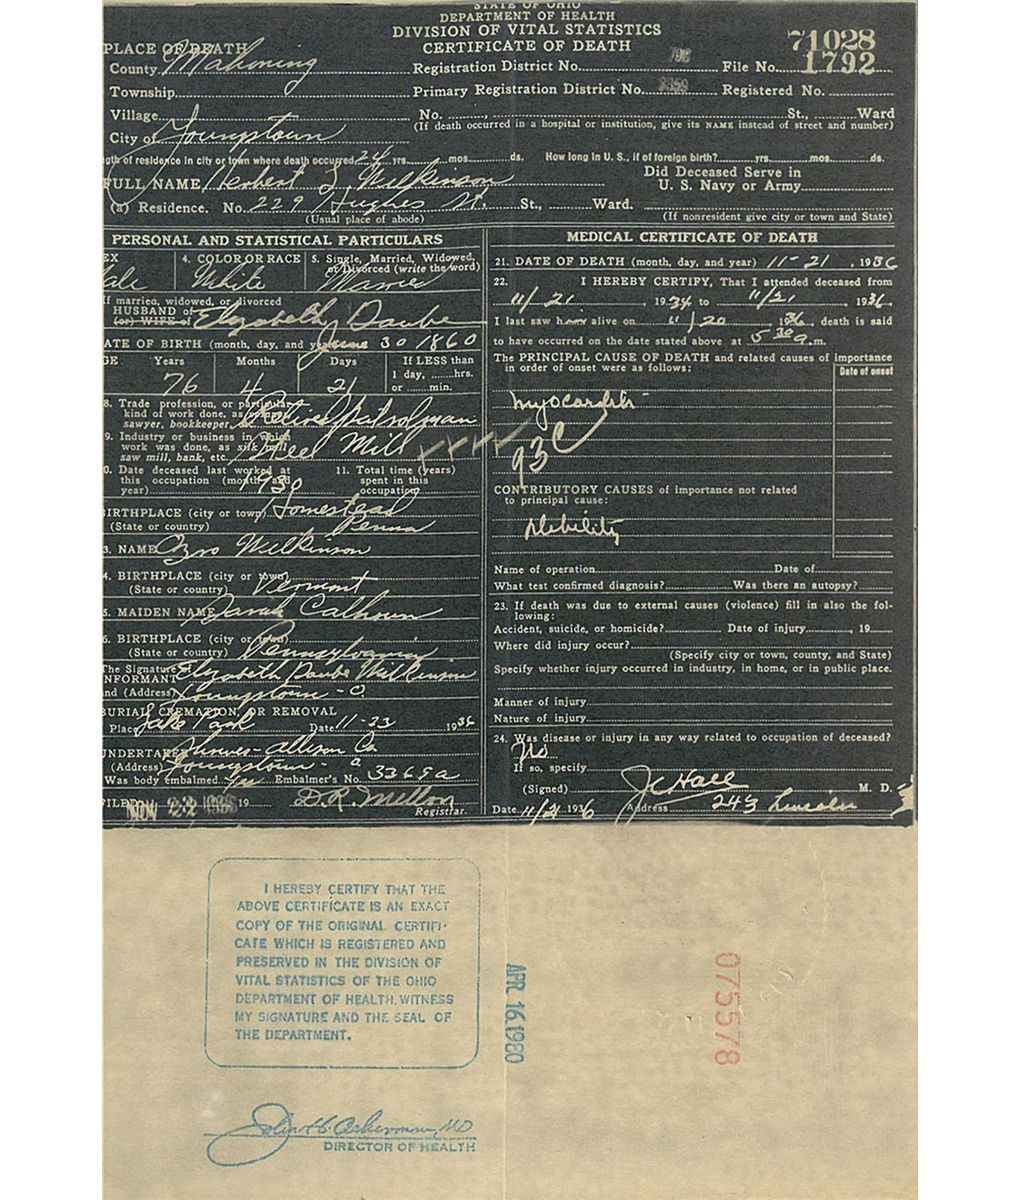 STATE OF OHIO
DEPARTMENT OF HEALTH
DIVISION OF VITAL STATISTICS
CERTIFICATE OF DEATH
71028
1792
PLACE OF DEATH
County Mahoning Registration District No. 798 File No.
Township Primary Registration District No. Registered No.
Village No. St., Ward
(If death occurred in a hospital or institution, give its NAME instead of street and number)
City of Youngstown
gth of residence in city or town where death occurred 24 yrs. mos. ds. How long in U. S., if of foreign birth? yrs. mos. ds.
FULL NAME Herbert L Wilkinson Did Deceased Serve in
U. S. Navy or Army
(a) Residence. No. 229 Hughes St. St., Ward.
(Usual place of abode) (If nonresident give city or town and State)
PERSONAL AND STATISTICAL PARTICULARS
EX 4. COLOR OR RACE 5. Single, Married, Widowed,
or Divorced (write the word)
ale White Married
If married, widowed, or divorced
HUSBAND of
(or) WIFE of Elizabeth Daube
ATE OF BIRTH (month, day, and year) June 30 1860
GE Years Months Days If LESS than
1 day, hrs.
or min.
76 4 21
8. Trade, profession, or particular
kind of work done, as
sawyer, bookkeeper, Retired Patrolman
9. Industry or business in which
work was done, as silk mill,
saw mill, bank, etc. Steel Mill
0. Date deceased last worked at
this occupation (month and
year) 1930
11. Total time (years)
spent in this
occupation
BIRTHPLACE (city or town) Homestead
(State or country) Penna
3. NAME Ozro Wilkinson
4. BIRTHPLACE (city or town)
(State or country) Vermont
5. MAIDEN NAME Sarah Calhoun
6. BIRTHPLACE (city or town)
(State or country) Pennsylvania
The Signature of
INFORMANT Elizabeth Daube Wilkinson
and (Address) Youngstown - O
BURIAL, CREMATION, OR REMOVAL
Place Lake Park Date 11-23 1936
UNDERTAKER Shriver-Allison Co
(Address) Youngstown - O
Was body embalmed Yes Embalmer's No. 3369a
FILED NOV 23 1936 19 D.R. Millon
Registrar.
MEDICAL CERTIFICATE OF DEATH
21. DATE OF DEATH (month, day, and year) 11-21, 1936
22. I HEREBY CERTIFY, That I attended deceased from
11/21, 1934 to 11/21, 1936.
I last saw him alive on 11/20 1936, death is said
to have occurred on the date stated above at 5 30 a.m.
The PRINCIPAL CAUSE OF DEATH and related causes of importance
in order of onset were as follows:
Date of onset
Myocarditis
93C
CONTRIBUTORY CAUSES of importance not related
to principal cause:
Debility
Name of operation Date of
What test confirmed diagnosis? Was there an autopsy?
23. If death was due to external causes (violence) fill in also the fol-
lowing:
Accident, suicide, or homicide? Date of injury, 19
Where did injury occur?
(Specify city or town, county, and State)
Specify whether injury occurred in industry, in home, or in public place.
Manner of injury
Nature of injury
24. Was disease or injury in any way related to occupation of deceased?
No
If so, specify
(Signed) JC Hall M. D.
Date 11/21 1936 Address 243 Lincoln
I HEREBY CERTIFY THAT THE
ABOVE CERTIFICATE IS AN EXACT
COPY OF THE ORIGINAL CERTIFI-
CATE WHICH IS REGISTERED AND
PRESERVED IN THE DIVISION OF
VITAL STATISTICS OF THE OHIO
DEPARTMENT OF HEALTH. WITNESS
MY SIGNATURE AND THE SEAL OF
THE DEPARTMENT.
APR. 16, 1980
075578
John H. Ackerman, MD
DIRECTOR OF HEALTH